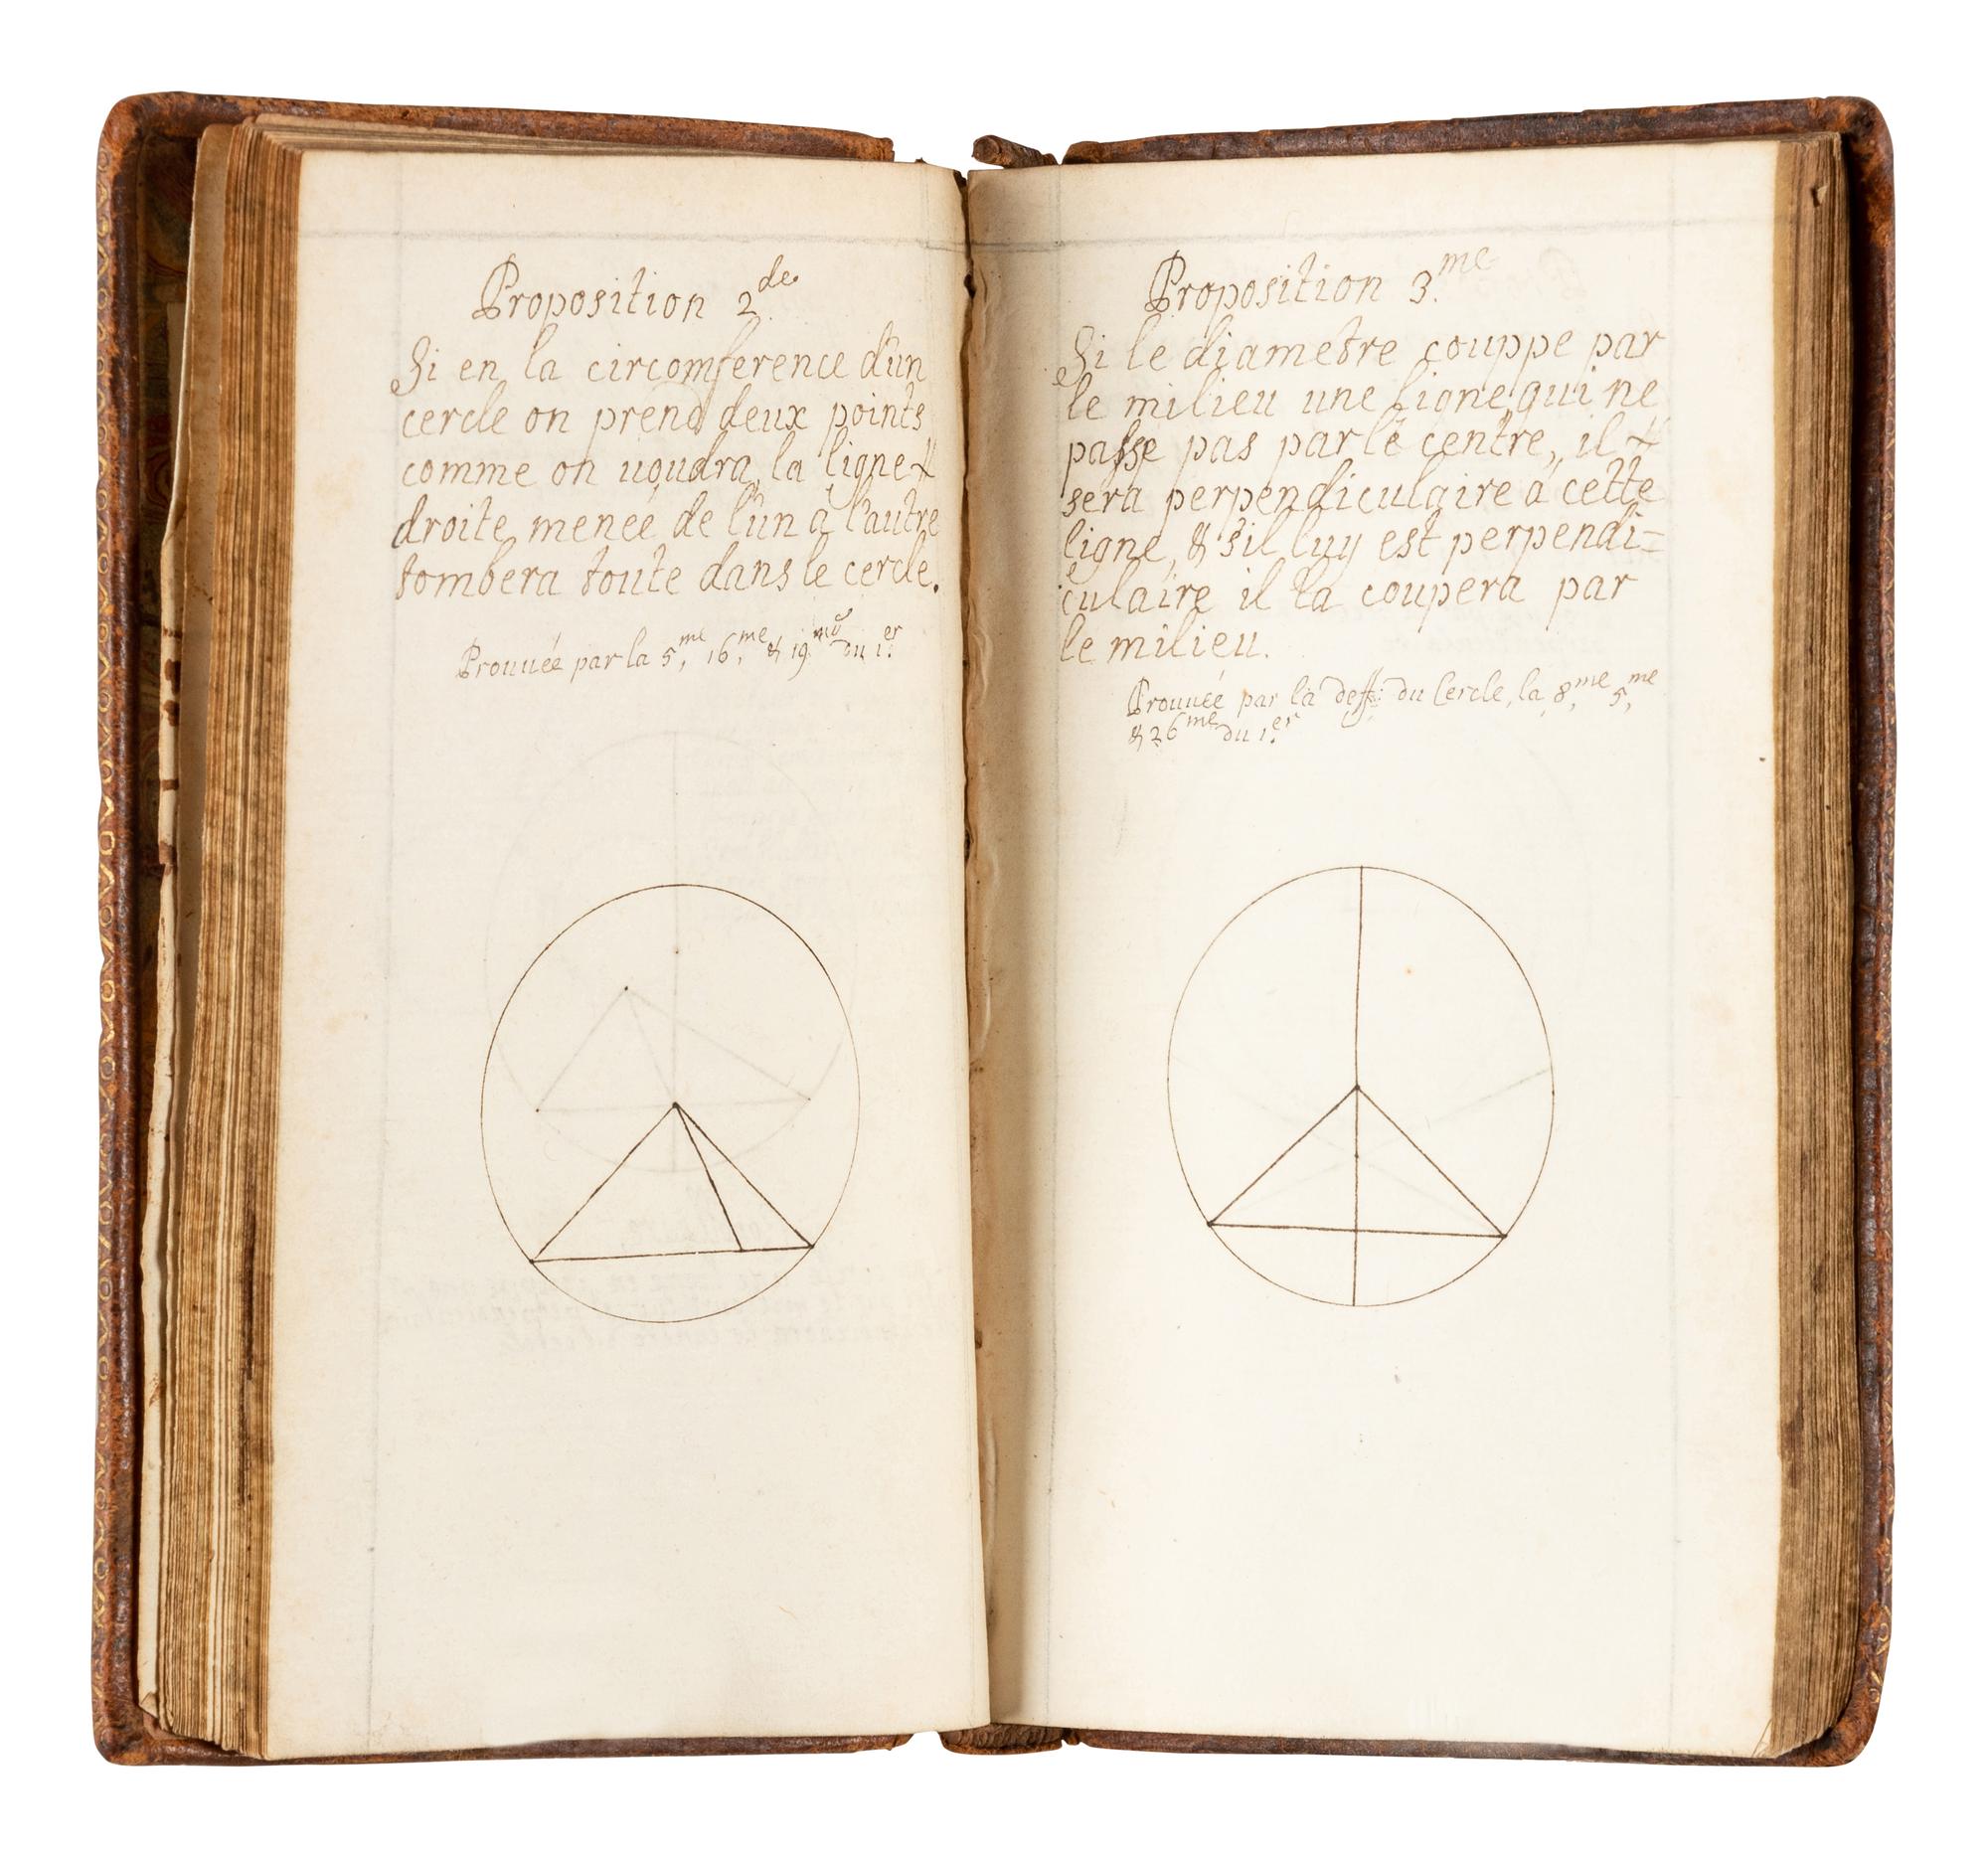 Proposition 2.de
Si en la circomference d'un
cercle on prend deux points
comme on uoudra, la ligne
droite menée de l'un à l'autre
tombera toute dans le cercle.
Prouuée par la 5.me, 16.me, & 19.me du 1.er
Proposition 3.me
Si le diametre couppe par
le milieu une ligne, qui ne
passe pas par le centre, il
sera perpendiculaire à cette
ligne, & s'il luy est perpendi=
culaire il la coupera par
le milieu.
Prouuée par la deff: du Cercle, la 8.me, 5.me,
& 26.me du 1.er